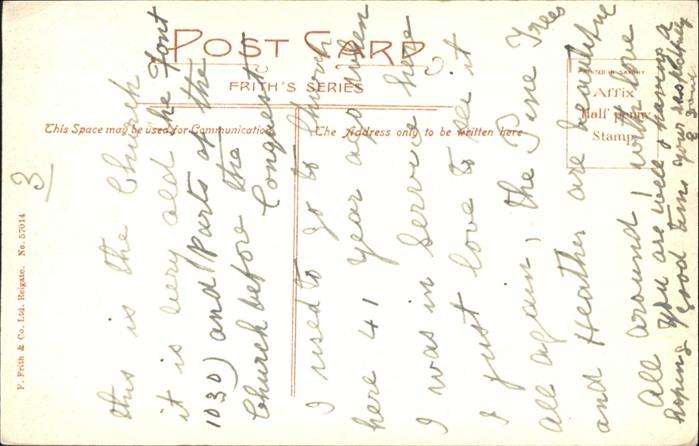 POST CARD
FRITH'S SERIES
This Space may be used for Communication.
The Address only to be written here
Affix
Half penny
Stamp
F. Frith & Co. Ltd. Reigate. No. 57014
3
this is the Church
it is very old the Font
1030) and parts of the
Church before the Conquest
I used to go to Church
here 41 year ago when
I was in Service here
I just love to see it
all again, the Pine Trees
and Heather are beautiful
all around, with love
you are well & having a
hoping good time your as Mother